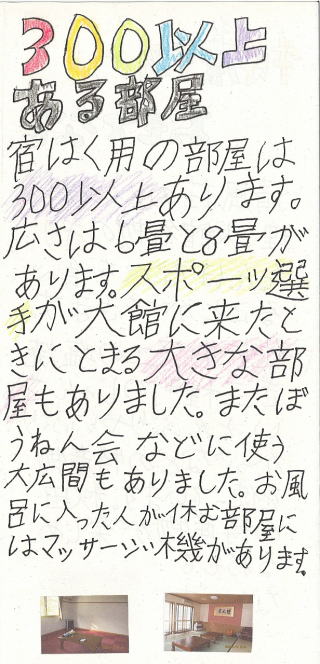 300以上
ある部屋
宿はく用の部屋は
300以上あります。
広さは6畳と8畳が
あります。スポーツ選
手が大館に来たと
きにとまる大きな部
屋もありました。またぼ
うねん会などに使う
大広間もありました。お風
呂に入った人が休む部屋に
はマッサージい機があります。